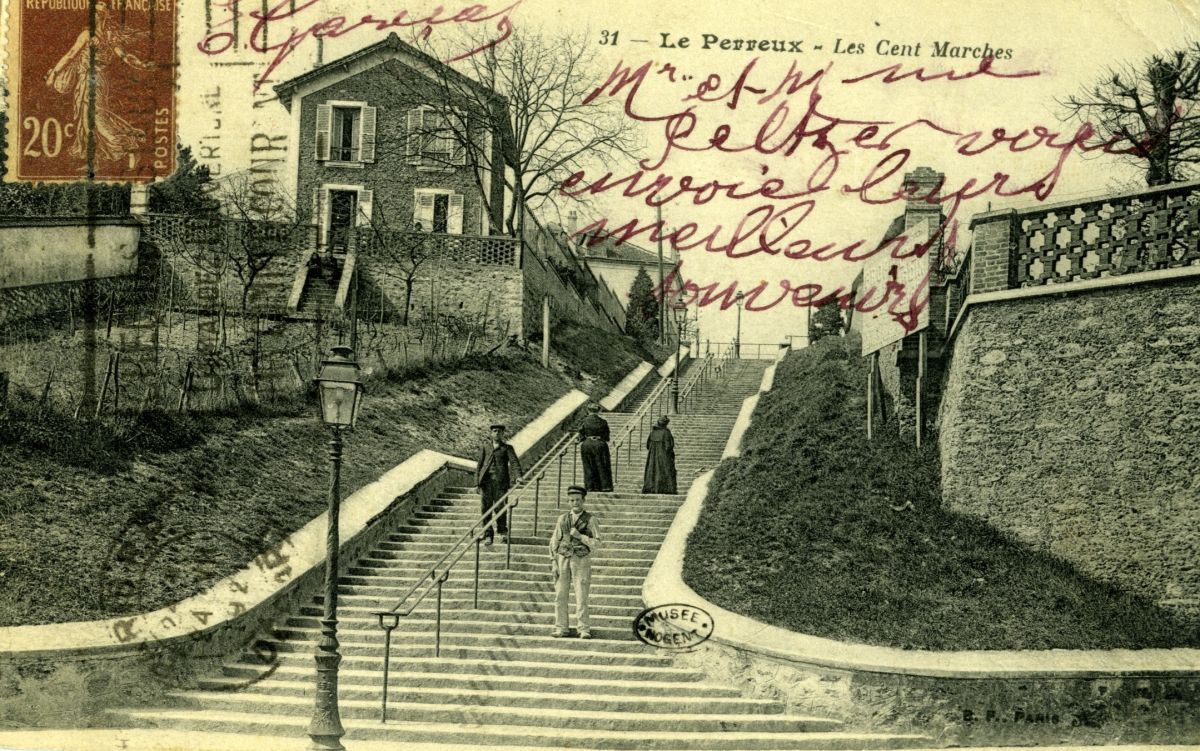 RÉPUBLIQUE FRANÇAISE
20c POSTES
31 – Le Perreux - Les Cent Marches
Mr et Mme
Peltier vous
envoie leurs
meilleurs
souvenirs
MUSÉE
NOGENT
B. F., PARIS